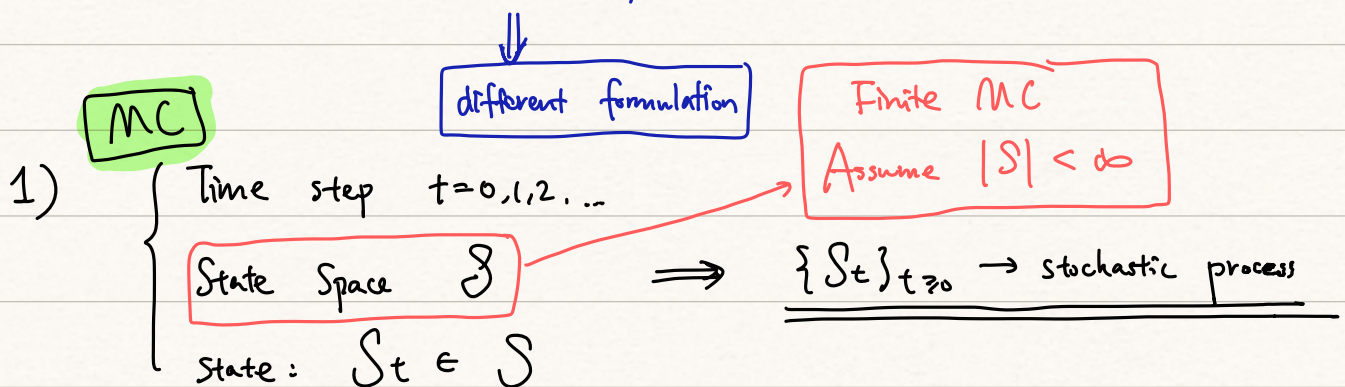 different formulation
Finite MC
Assume |S| < ∞
MC
1)
Time step t=0,1,2,...
State Space S
{St}t≥0 → stochastic process
state: St ∈ S